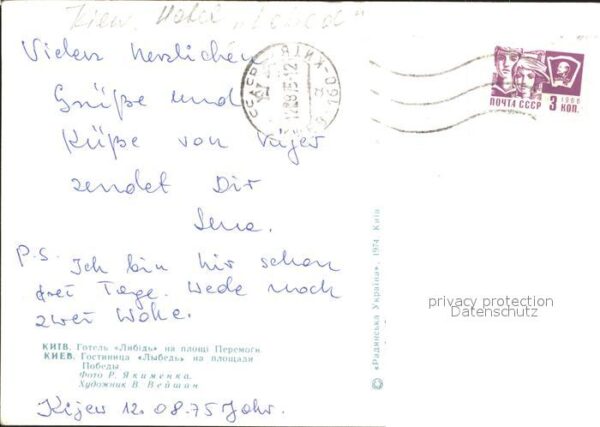 Kiew. Hotel „Lebed"
Vielen herzlichen
Grüße und
Küße von
sendet Dir
Lena.
P.S. Ich bin hir schon
drei Tage. Wede noch
zwei Woke.
КИЇВ. Готель «Либідь» на площі Перемоги
КИЕВ. Гостиница «Лыбедь» на площади
Победы
Фото Р. Якименка.
Художник В. Вейшан
Kijew 12.08.75 Jahr.
© «Радянська Україна», 1974. Київ
ПОЧТА СССР 3 КОП.
1966
privacy protection
Datenschutz